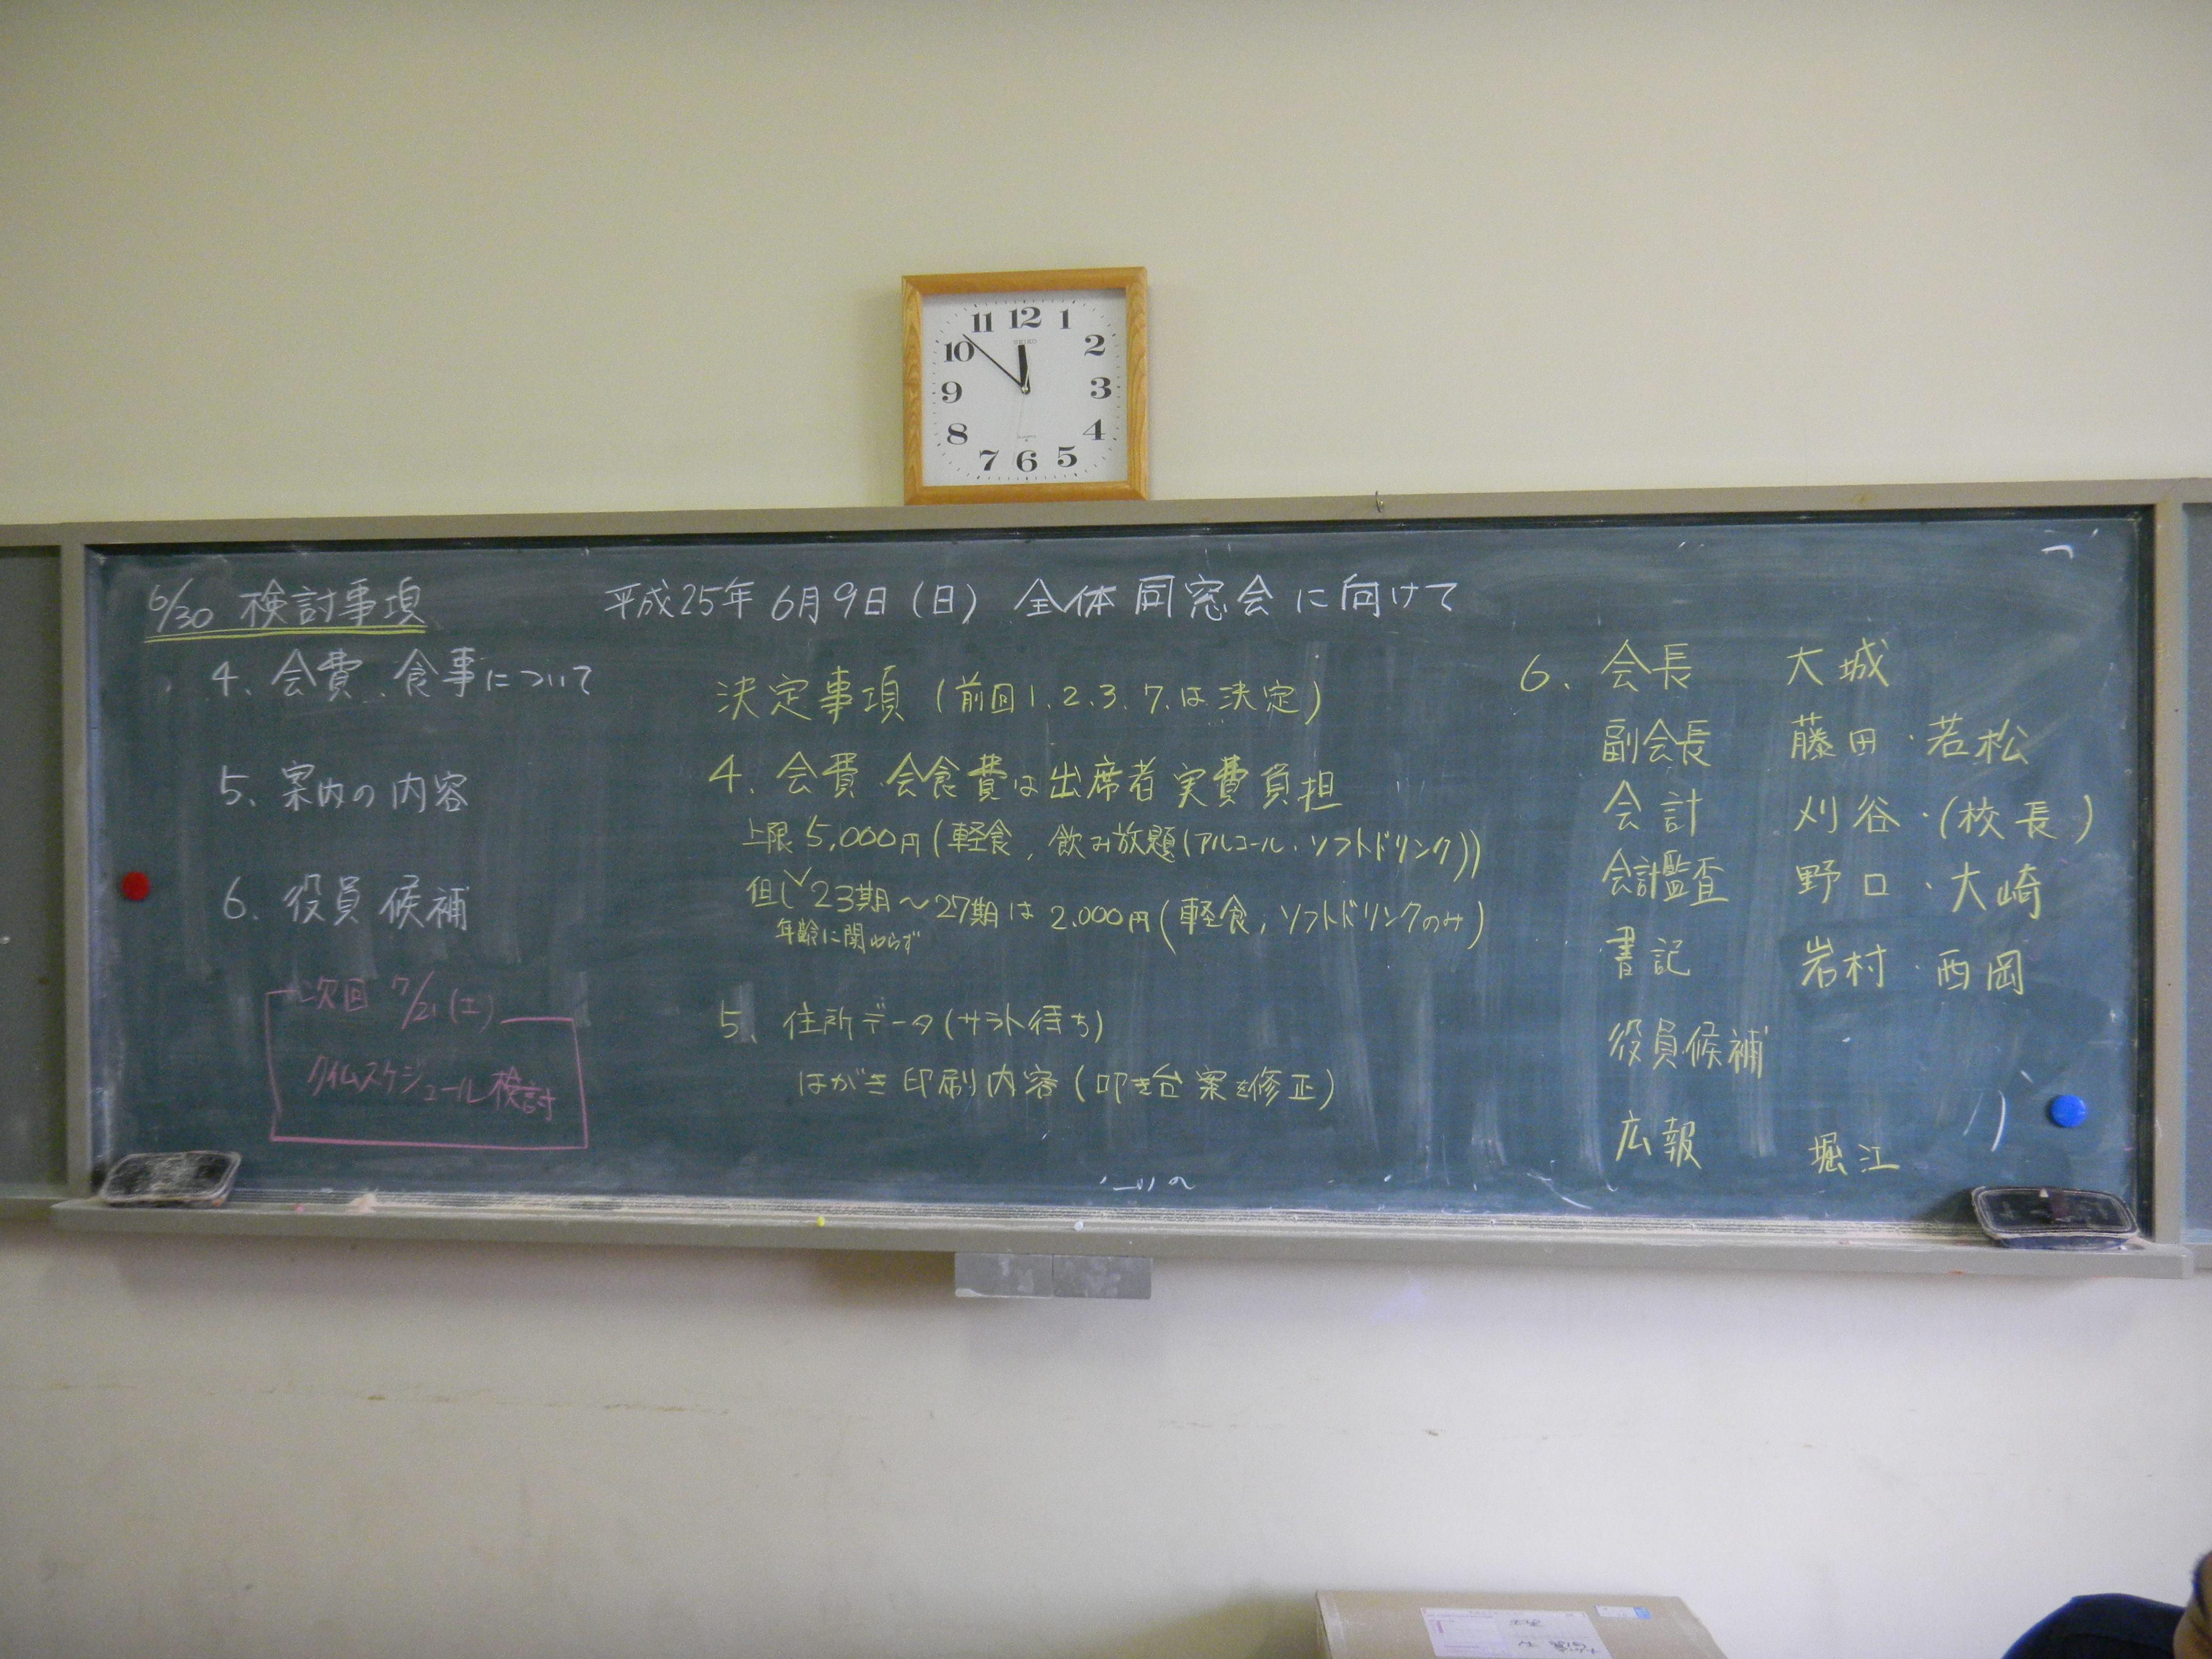 11 12 1
10 2
9 3
8 4
7 6 5
SEIKO
QUARTZ
平成25年 6月9日(日) 全体同窓会に向けて
6/30 検討事項
4. 会費、食事について
5. 案内の内容
6. 役員候補
次回 7/21(土)
タイムスケジュール検討
決定事項 (前回1.2.3.7.は決定)
4. 会費・会食費は出席者実費負担
上限5,000円(軽食、飲み放題(アルコール・ソフトドリンク))
但し 23期～27期は2.000円(軽食,ソフトドリンクのみ)
年齢に関わらず
5. 住所データ(サラト待ち)
はがき印刷内容(叩き台案を修正)
6. 会長 大城
副会長 藤田・若松
会計 刈谷・(校長)
会計監査 野口・大崎
書記 岩村・西岡
役員候補
広報 堀江